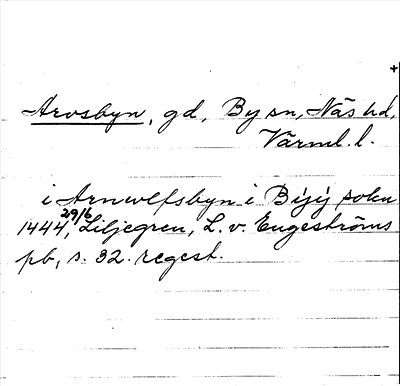 +
Arvsbyn, gd, By sn, Näs hd,
Värml. l.
i Arnwlfsbyn i Bijij sokn
1444 29/6, Liljegren, L. v. Engeströms
pb, s. 32. regest.